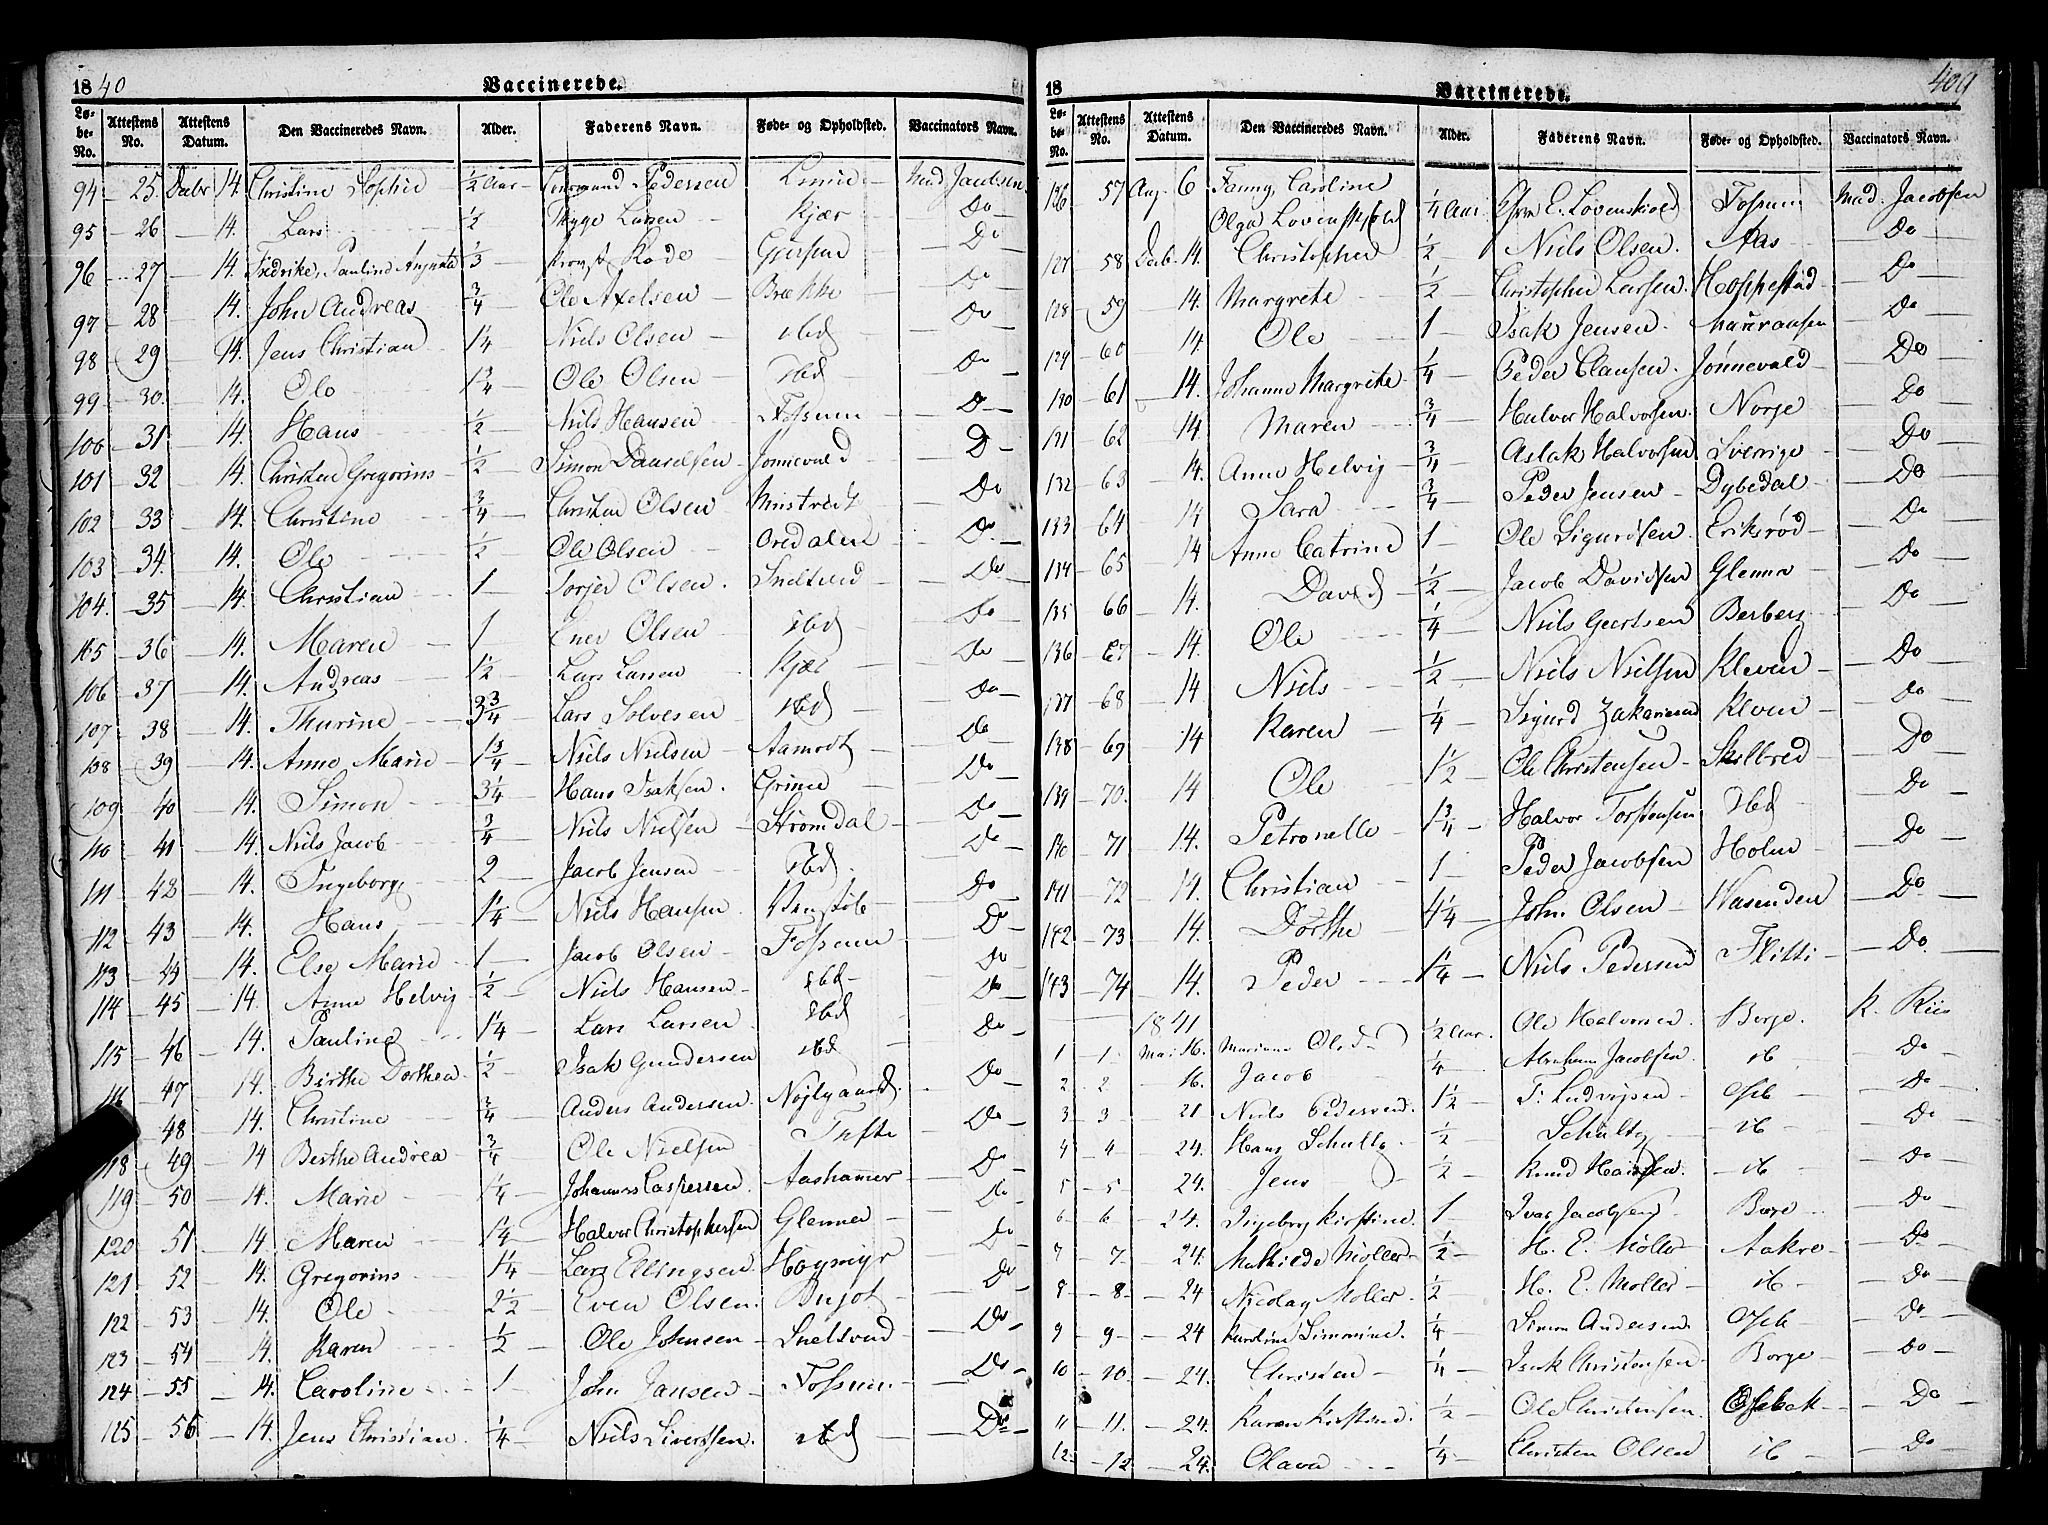 1840 Vaccinerede.
Løbe-No. Attestens No. Attestens Datum. Den Vaccineredes Navn. Alder. Faderens Navn. Føde- og Opholdsted. Vaccinators Navn.
94 25 Decbr 14. Christine Sophie ½ Aar Pedersen Mad. Jacobsen
95 26 14. Lars ½ Thyge Larsen Kjær Do
96 27 14. Fredrike, Pauline Augusta ⅓ Provst Rode Gjerpen Do
97 28 14. John Andreas ¾ Ole Axelsen Brække Do
98 29 14. Jens Christian 1¼ Niels Olsen ibd Do
99 30. 14. Ole 1¾ Ole Olsen Ibd Do
100 31 14. Hans ½ Niels Hansen Fossum D
101 32 14. Christen Gregorius ½ Simon Danielsen Jønnevald D
102 33 14. Christine ¾ Christen Olsen Mustvedt Do
103 34. 14. Ole ½ Ole Olsen Oredalen Do
104. 35 14. Christian 1 Torjer Olsen. Sneltved Do
105 36 14. Maren 1 Ener Olsen Ibd Do
106 37 14. Andreas 1½ Lars Larsen Kjær Do
107 38 14. Thurine 3¾ Lars Solvesen ibd Do
108 39 14. Anne Marie 1¾ Niels Nielsen Aamodt Do
109 40 14. Simon 3¼ Hans Isaksen. Grinie Do
110 41 14. Niels Jacob ¾ Niels Nielsen Strømdal Do
111 42 14. Ingeborg 2 Jacob Jensen Ibd. Do
112 43 14. Hans 1¼ Niels Hansen Venstøb Do
113 44 14. Else Marie 1 Jacob Olsen Fossum Do
114 45 14. Anne Helvig ½ Niels Hansen ibd Do
115 46 14. Pauline 1¼ Lars Larsen Ibd Do
116 47 14. Birthe Dorthea ½ Isak Gundersen ibd Do
48 14. Christine ¾ Anders Andersen Nøjlgaard. Do
118 49 14 Berthe Andrea ¾ Ole Nielsen Tufte Do
119 50 14. Marie 1¼ Johannes Caspersen. Aashammer Do
120 51 14 Maren 1¼ Halvor Christophersen Glenner Do
121 52 14. Gregorius 1¼ Lars Ellingsen Høymyr Do
122 53 14. Ole 2½ Even Olsen. Do
123 54 14. Karen ½ Ole Johnsen Sneltved Do
124 55 14. Caroline 1 John Jansen Fossum Do
125 56 14. Jens Christian ¼ Niels Sivertsen. ibd Do
18 Vaccinerede. 409
Løbe-No. Attestens No. Attestens Datum. Den Vaccineredes Navn. Alder. Faderens Navn. Føde- og Opholdsted. Vaccinators Navn.
126 57 Aug 6 Fanny, Caroline
Olga Lovenskiold ¼ Aar E. Lovenskiold Fossum Mad. Jacobsen
127 58 Decb. 14. Christopher ½ Niels Olsen. Aas Do
128 59 14. Margrete ½ Christopher Larsen. Hoppestad Do
129 60 14. Ole 1 Isak Jensen. Do
130 61 14. Johanne Margrete ¼ Peder Clausen. Jønnevald Do
131 62 14 Maren ¾ Halvor Halvorsen. Norge Do
132 63 14. Anne Helvig ¾ Aslak Halvorsen Sverrige Do
133 64 14 Sara ¾ Peder Jensen Dybedal Do
134 65 14 Anne Catrine 1 Ole Sigurdsen. Eriksrød Do
135 66 14. David ½ Jacob Davidsen Glenna Do
136 67 14. Ole ¼ Niels Geertsen Berberg Do
137 68 14 Niels ½ Niels Nielsen Kleven Do
138 69 14 Karen ¼ Sigurd Zakariasen Kleven Do
139 70. 14 Ole 1½ Ole Christensen Skilbred Do
140 71 14. Petronelle 1¾ Halvor Torstensen Ibd Do
141 72 14. Christian 1 Peder Jacobsen Holm Do
142 73 14. Dorthe 4¼ John Olsen Wasenden Do
143 74 14. Peder 1¼ Niels Pedersen Flitti Do
1841
1 1 Mai 16. Mariane Olsd ½ Aar. Ole Halvorsen. Borge. K. Riis
2 2 16. Jacob ¼ Abraham Jacobsen. ib Do
3 3 21 Niels Pedersen. 1½ T. Ludvigsen Oseb Do
4 4 24. Hans Schultz. ½ Schultz ib Do
5 5 24. Jens ½ Knud Hansen. ib Do
6 6 24. Ingeborg Kirstine. 1 Ivar Jacobsen Borge Do
7 7 24. Mathilde Møller ½ H. E. Møller Aakre Do
8 8 24 Nicolay Møller. ½ H. E. Møller ib Do
9 9 24 Karoline Simmine. ¼ Simon Andersen. Oseb Do
10 10. 24. Christen ¼ Isak Christensen Borge Do
11 11. 24. Karen Kirstine. ½ Ole Christensen. Osebak Do
12. 12 24. Olava ¼ Christen Olsen ib Do